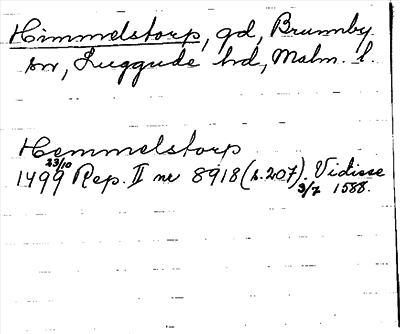 Himmelstorp, gd, Brunnby
sn, Luggude hd, Malm. l.
Hemmelstorp
1499 23/10 Rep. II nr 8918 (s. 207). Vidisse
3/7 1588.